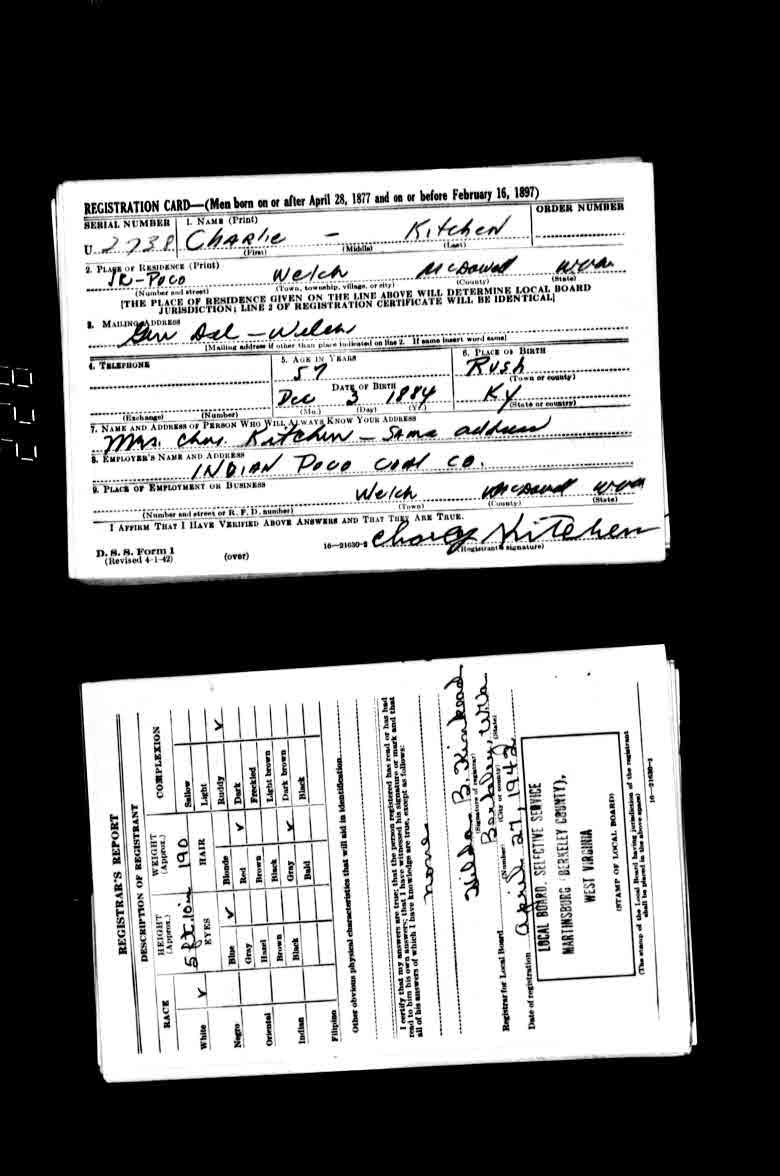 REGISTRATION CARD—(Men born on or after April 28, 1877 and on or before February 16, 1897)
SERIAL NUMBER 1. NAME (Print) ORDER NUMBER
U 2738 CHARlie - Kitchen
(First) (Middle) (Last)
2. PLACE OF RESIDENCE (Print)
Welch McDowell W.Va
(Number and street) (Town, township, village, or city) (County) (State)
[THE PLACE OF RESIDENCE GIVEN ON THE LINE ABOVE WILL DETERMINE LOCAL BOARD
JURISDICTION; LINE 2 OF REGISTRATION CERTIFICATE WILL BE IDENTICAL]
3. MAILING ADDRESS
Gen Del - Welch
[Mailing address if other than place indicated on line 2. If same insert word same]
4. TELEPHONE 5. AGE IN YEARS 6. PLACE OF BIRTH
57 Rush
(Town or county)
DATE OF BIRTH
Dec 3 1884 Ky
(Exchange) (Number) (Mo.) (Day) (Yr.) (State or country)
7. NAME AND ADDRESS OF PERSON WHO WILL ALWAYS KNOW YOUR ADDRESS
Mrs. Chas. Kitchen - Same address
8. EMPLOYER'S NAME AND ADDRESS
INDIAN POCO COAL CO.
9. PLACE OF EMPLOYMENT OR BUSINESS
Welch McDowell W.Va
(Number and street or R. F. D. number) (Town) (County) (State)
I AFFIRM THAT I HAVE VERIFIED ABOVE ANSWERS AND THAT THEY ARE TRUE.
D. S. S. Form 1
(Revised 4-1-42) (over) 16—21630-2 Charley Kitchen
(Registrant's signature)
REGISTRAR'S REPORT
DESCRIPTION OF REGISTRANT
RACE HEIGHT (Approx.) WEIGHT (Approx.) COMPLEXION
5 ft. 10 in 190
EYES HAIR
White ✓ Blue ✓ Blonde Sallow
Light
Negro Gray Red ✓ Ruddy ✓
Hazel Brown Dark
Oriental Brown Black Freckled
Black Gray ✓ Light brown
Indian Bald Dark brown
Black
Filipino
Other obvious physical characteristics that will aid in identification
I certify that my answers are true; that the person registered has read or has had
read to him his own answers; that I have witnessed his signature or mark and that
all of his answers of which I have knowledge are true, except as follows:
none
Hilda B. Kinkead
(Signature of registrar)
Registrar for Local Board Berkeley W.Va
(Number) (City or county) (State)
Date of registration April 27, 1942
LOCAL BOARD, SELECTIVE SERVICE
MARTINSBURG (BERKELEY COUNTY),
WEST VIRGINIA
(STAMP OF LOCAL BOARD)
(The stamp of the Local Board having jurisdiction of the registrant
shall be placed in the above space)
16—21630-2